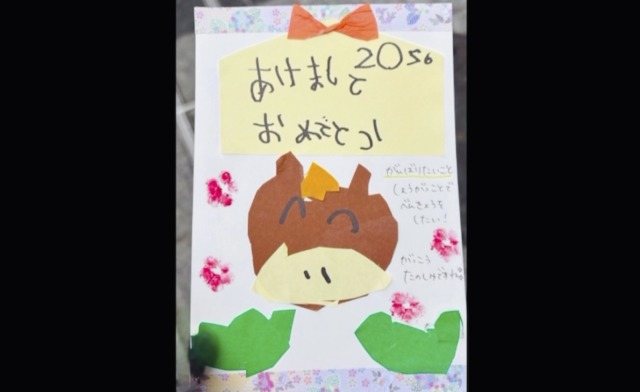 2056
あけまして
おめでとう
がんばりたいこと
しょうがっこうで
べんきょうを
したい！
がっこう
たのしみですね。